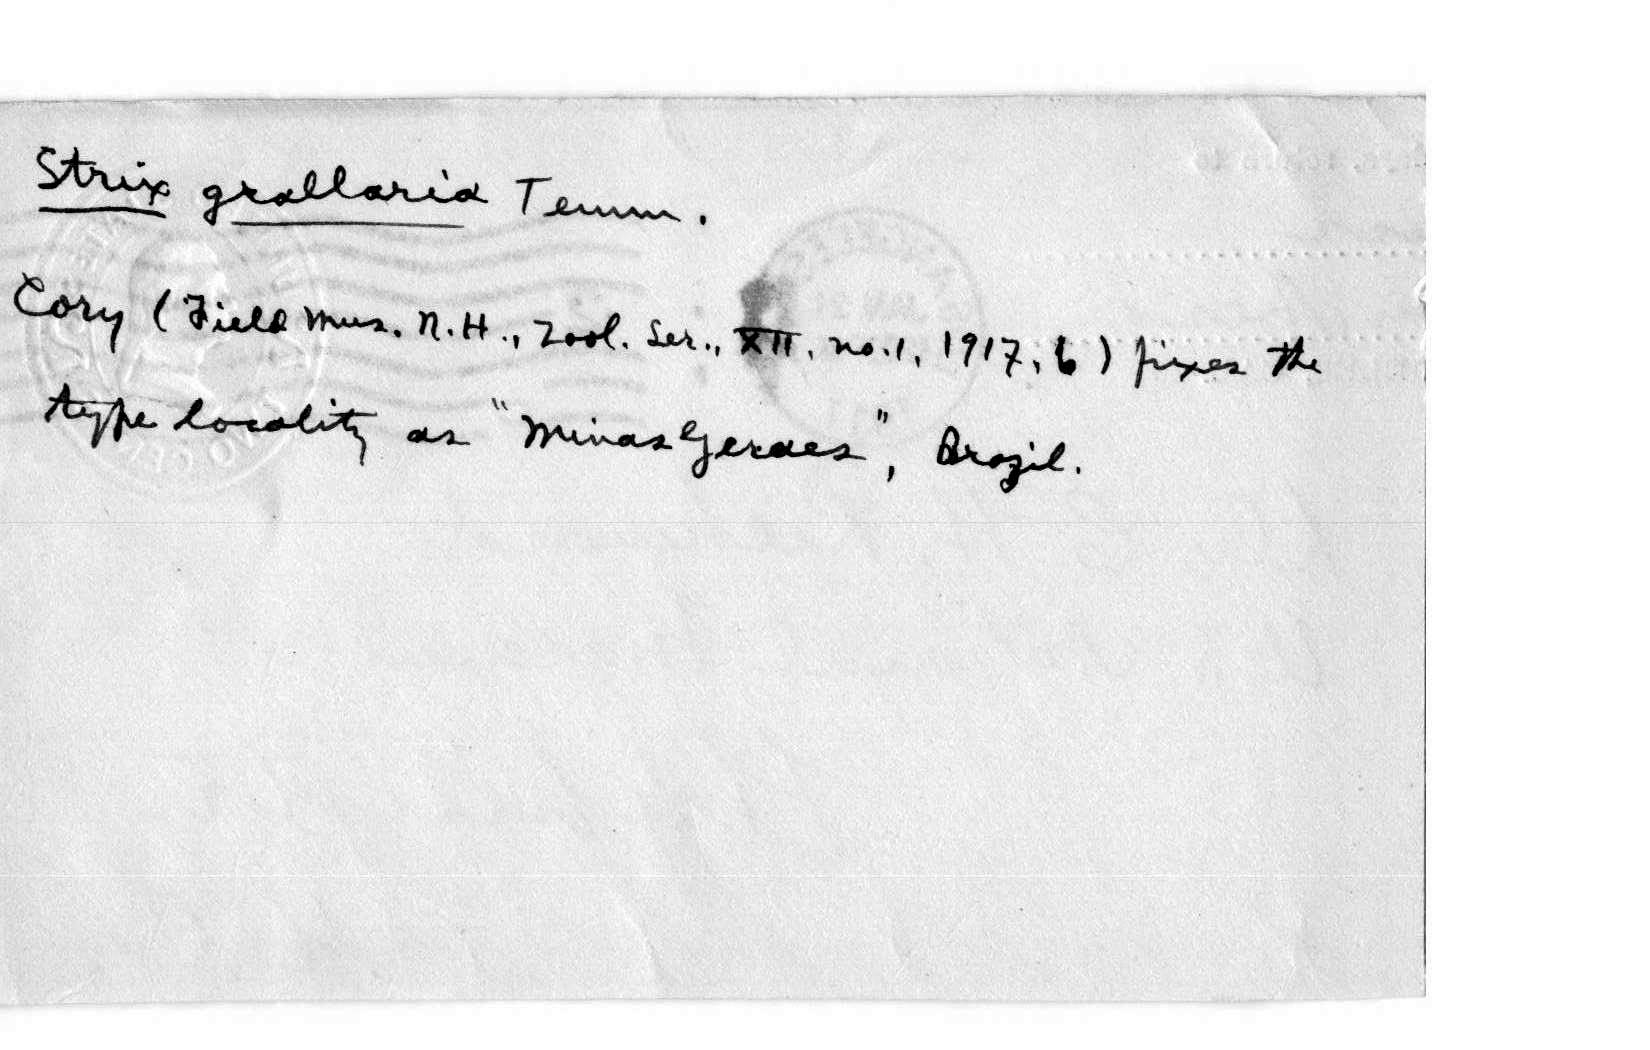 Strix grallaria Temm.
Cory (Field Mus. N.H., Zool. Ser., XII, no.1, 1917, 6) fixes the
type locality as "Minas Geraes", Brazil.